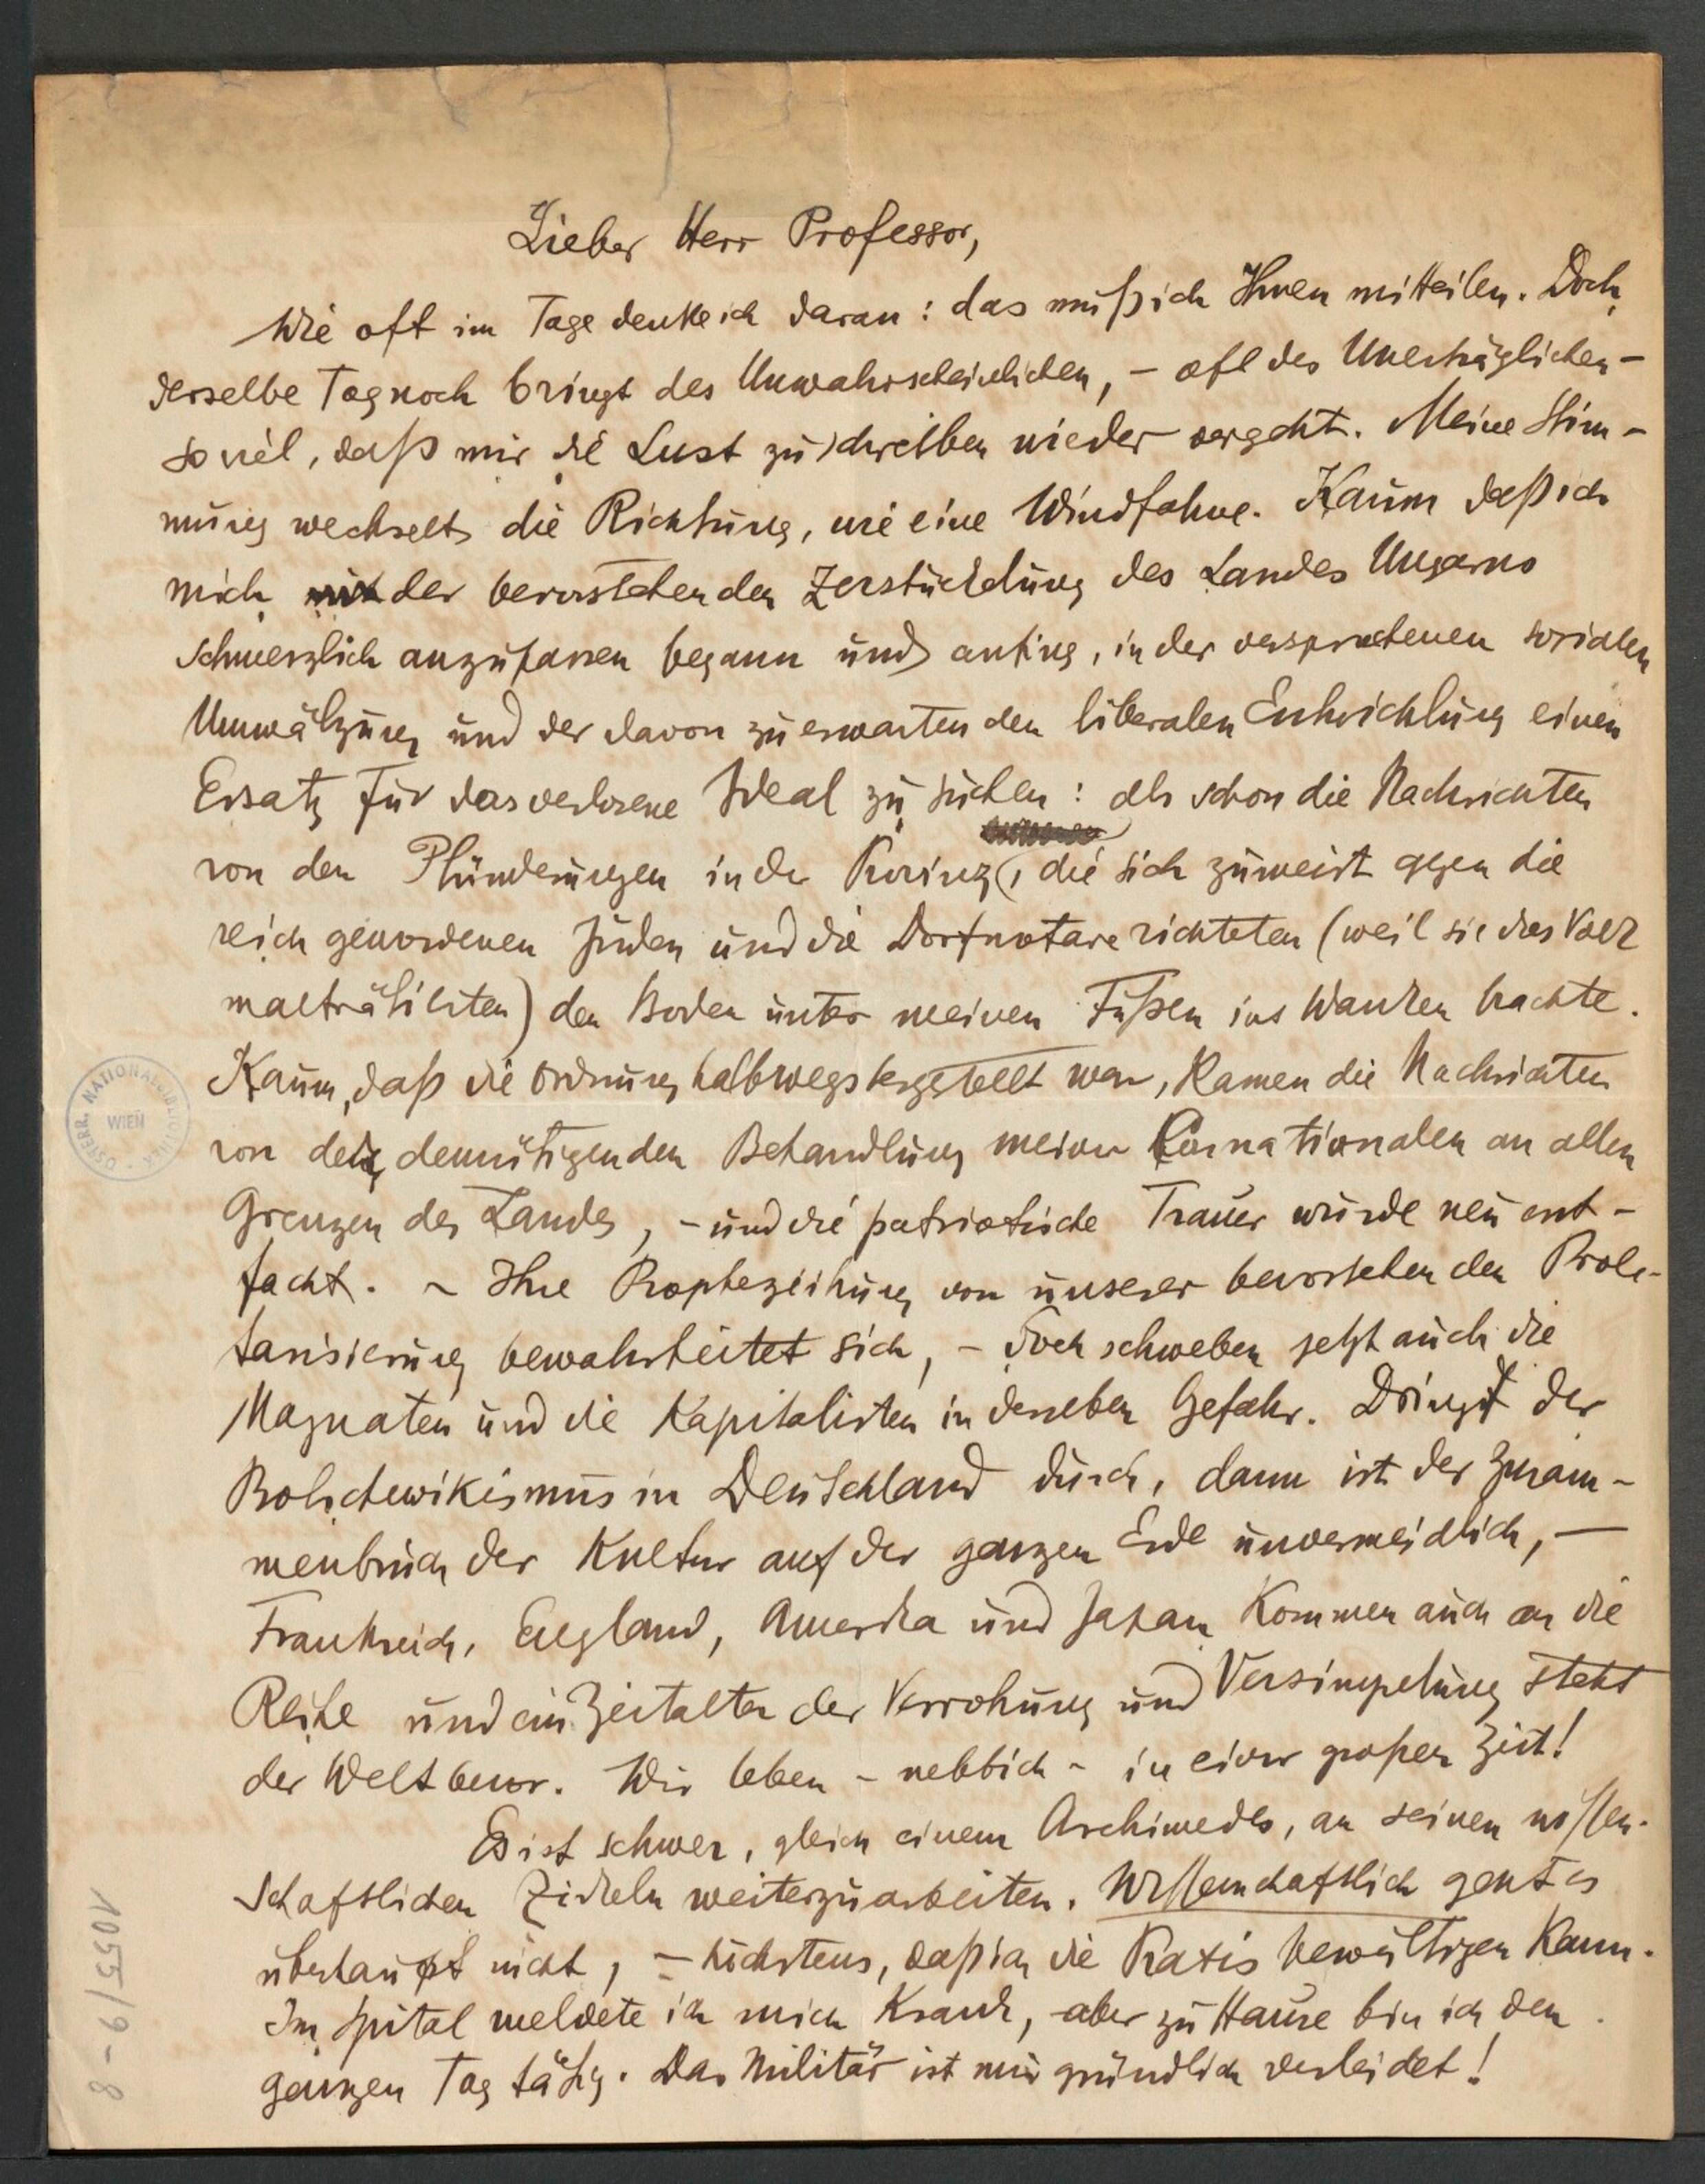 Lieber Herr Professor,
Wie oft im Tage denke ich daran: das muß ich Ihnen mitteilen. Doch
derselbe Tag noch bringt des Unwahrscheinlichen, – oft des Unerträglichen –
soviel, daß mir die Lust zu schreiben wieder vergeht. Meine Stim-
mung wechselt die Richtung, wie eine Windfahne. Kaum daß ich
mich mit der bevorstehenden Zerstückelung des Landes Ungarns
schmerzlich anzupassen begann und anfing, in der versprochenen sozialen
Umwälzung und der davon zu erwartenden liberalen Entwicklung einen
Ersatz für das verlorene Ideal zu suchen: als schon die Nachrichten
von den Plünderungen in der Provinz, die sich zumeist gegen die
reich gewordenen Juden und die Dorfnotare richteten (weil sie das Volk
malträtierten) den Boden unter meinen Füßen ins Wanken brachte.
Kaum, daß die Ordnung halbwegs hergestellt war, kamen die Nachrichten
von der demütigenden Behandlung meiner Connationalen an allen
Grenzen des Landes, – und die patriotische Trauer wurde neu ent-
facht. – Ihre Prophezeihung von unserer bevorstehenden Prole-
tarisierung bewahrheitet sich, – doch schweben jetzt auch die
Magnaten und die Kapitalisten in derselben Gefahr. Dringt der
Bolschewikismus in Deutschland durch, dann ist der Zusam-
menbruch der Kultur auf der ganzen Erde unvermeidlich, –
Frankreich, England, Amerika und Japan kommen auch an die
Reihe und ein Zeitalter der Verrohung und Versimpelung steht
der Welt bevor. Wir leben – nebbich – in einer großen Zeit!
Es ist schwer, gleich einem Archimedes, an seinen wissen-
schaftlichen Zirkeln weiterzuarbeiten. Wissenschaftlich geht es
überhaupt nicht, – höchstens, daß ich die Praxis bewältigen kann.
Im Spital meldete ich mich krank, aber zu Hause bin ich den
ganzen Tag tätig. Das Militär ist mir gründlich verleidet!
ÖSTERR. NATIONALBIBLIOTHEK
WIEN
1055/9-8